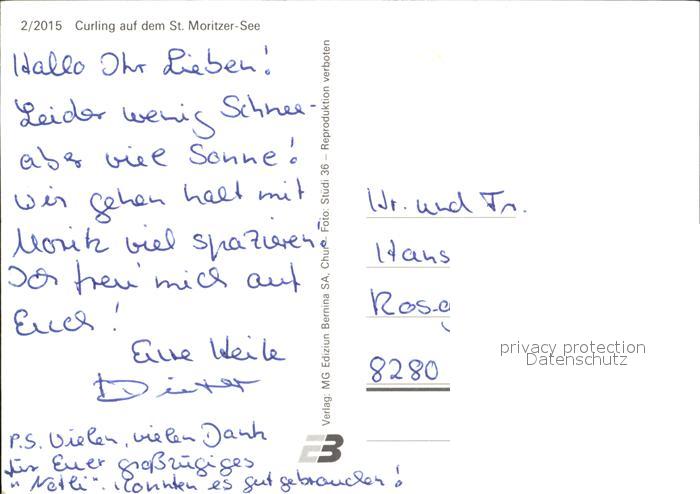 2/2015 Curling auf dem St. Moritzer-See
Hallo Ihr Lieben!
Leider wenig Schnee-
aber viel Sonne!
Wir gehen halt mit
Moritz viel spazieren!
Ich freu' mich auf
Euch!
Eure Heile
Dieter
P.S. Vielen, vielen Dank
für Euer großzügiges
"Nötli". Konnten es gut gebrauchen!
Verlag: MG Ediziun Bernina SA, Chur Foto: Studi 36 – Reproduktion verboten
Hr. und Fr.
Hans
Roseg
8280
privacy protection
Datenschutz